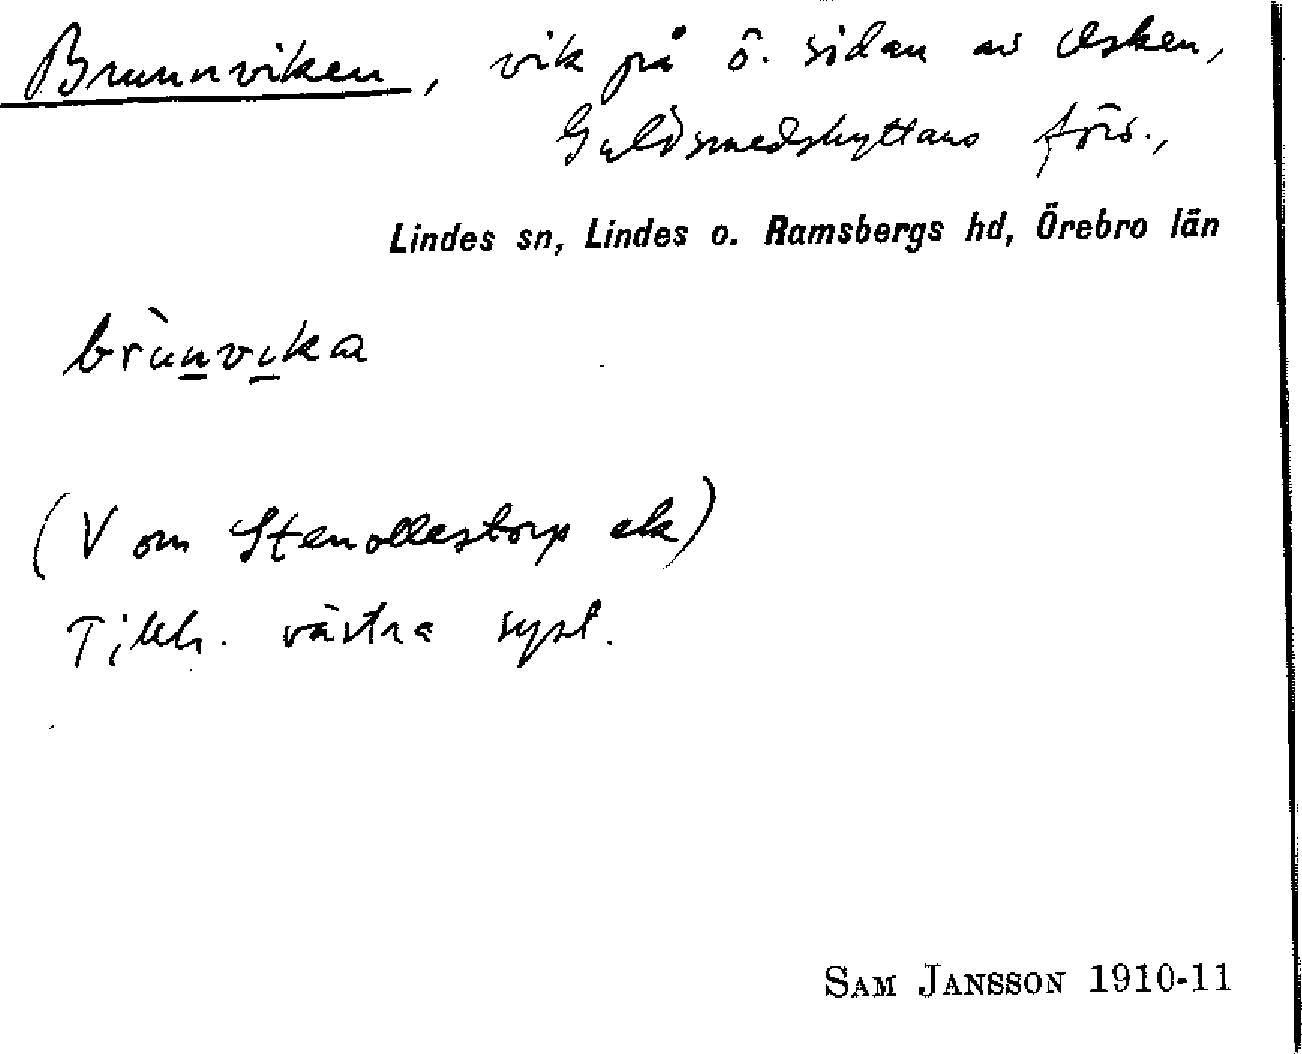 Brunnviken, vik på ö. sidan av Usken,
Guldsmedshyttans förs.,
Lindes sn, Lindes o. Ramsbergs hd, Örebro län
brùnvika
(V om Stenollestorp ek)
västra syst.
SAM JANSSON 1910-11